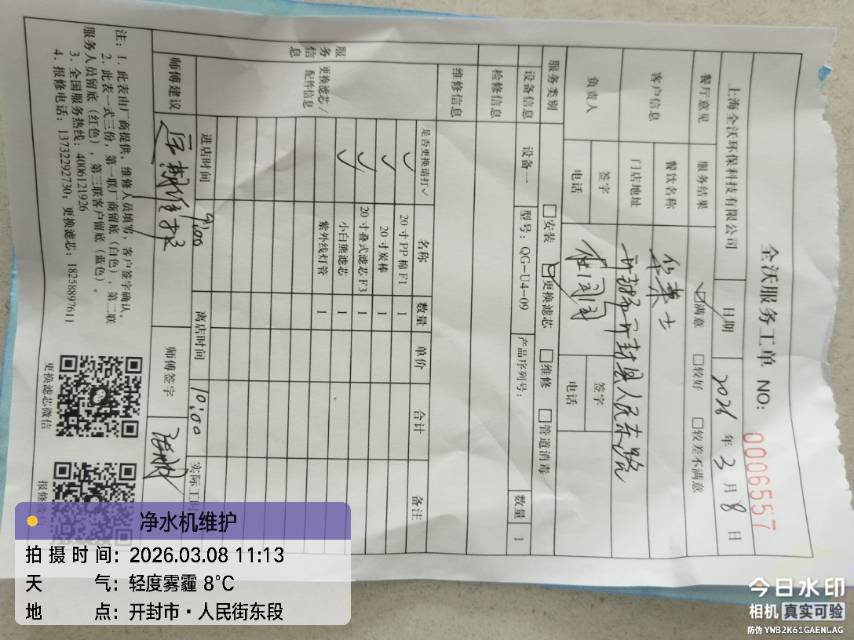 全沃服务工单 NO: 0006557
上海全沃环保科技有限公司 日期 2026 年 3 月 8 日
餐厅意见 服务结果 ☑满意 □较好 □较差不满意
客户信息 餐饮名称 华莱士
门店地址 开封市开封县人民东路
负责人 签字 签字
电话 电话
服务类别 □安装 ☑更换滤芯 □维修 □管道消毒
设备信息 设备一 型号: QG-U4-09 产品序列号: 数量 1
检修信息
维修信息
服务信息 更换滤芯/配件信息
是否更换请打√ 名称 数量 单价 合计 备注
√ 20寸PP棉F1 1
√ 20寸炭棒 1
√ 20寸叠式滤芯F3 1
√ 小白熊滤芯 1
紫外线灯管 1
进店时间 9:00 离店时间 10:00 实际工时
师傅建议 后期维护 师傅签字
注: 1. 此表由厂商提供, 维修人员填写, 客户签字确认。
2. 此表一式三份, 第一联厂商留底(白色), 第二联
服务人员留底(红色), 第三联客户留底(蓝色)。
3. 全国服务热线: 4006121926
4. 报修电话: 13732292730; 更换滤芯: 18258897611
更换滤芯微信
报修
净水机维护
拍摄时间: 2026.03.08 11:13
天 气: 轻度雾霾 8℃
地 点: 开封市·人民街东段
今日水印
相机 真实可验
防伪 YWB2K61GAENLAG